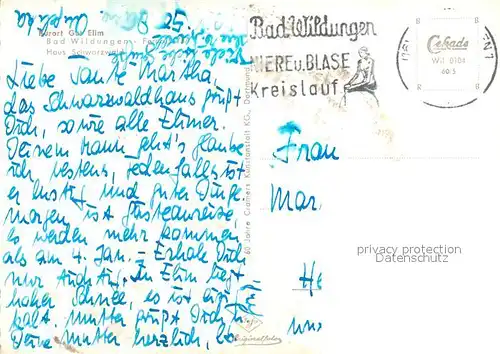 Kurort Gol Elim
Bad Wildungen
Haus Schwarzwald
Liebe Tante Martha,
das Schwarzwaldhaus grüßt
Dich, sowie alle Elimer.
Deinem Mann geht's glaube
ich, bestens, jedenfalls ist
er lustig und guter Dinge.
Morgen ist Gästeanreise,
es werden mehr kommen
als am 4. Jan. – Erhole Dich
nur auch gut. In Elim liegt
hoher Schnee, es ist
kalt. Mutter grüßt Dich
Deine Mutter herzlich,
Angelika
60 Jahre Cramers Kunstanstalt KG., Dortmund
Originalfoto
Bad Wildungen
NIERE u. BLASE
Kreislauf
Cekade
Wil 0104
60/5
Frau
Mar
privacy protection
Datenschutz